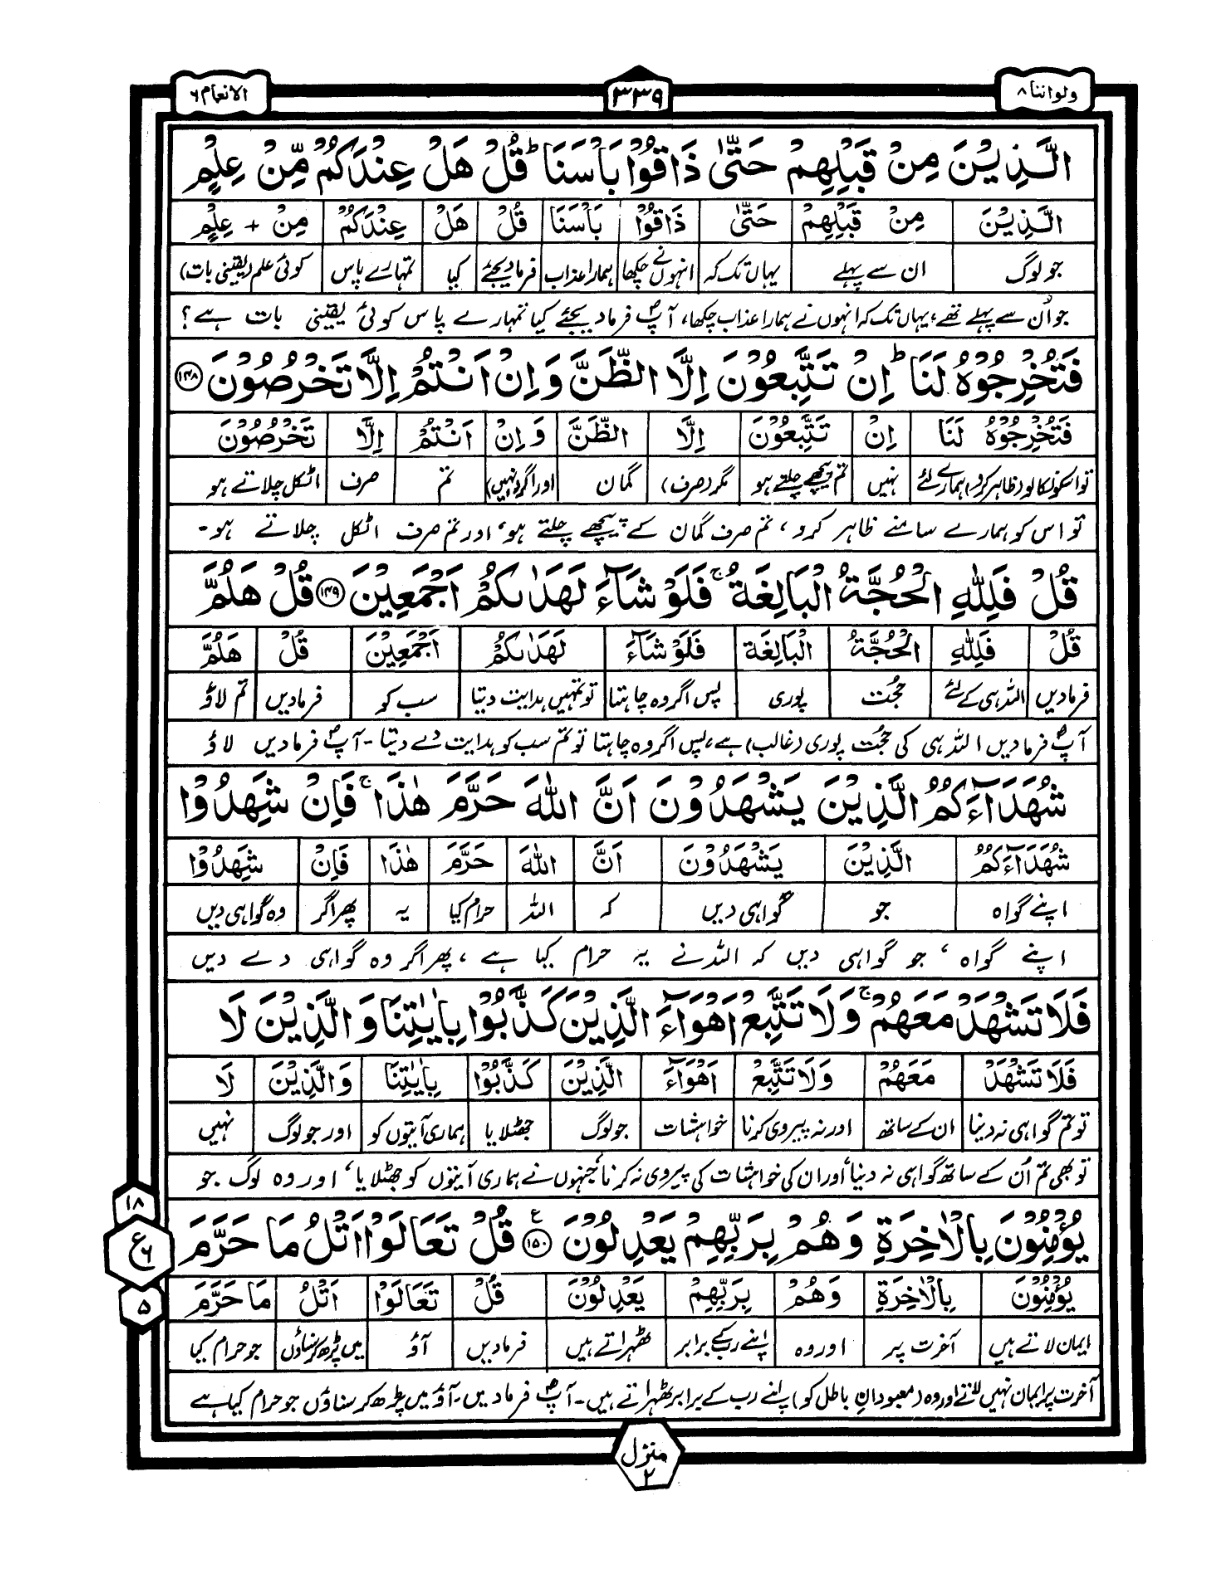 ولواننا ۸
۳۳۹
الانعام ۶
الَّذِيْنَ مِنْ قَبْلِهِمْ حَتّٰى ذَاقُوْا بَاْسَنَا ؕ قُلْ هَلْ عِنْدَكُمْ مِّنْ عِلْمٍ
الَّذِيْنَ مِنْ قَبْلِهِمْ حَتّٰى ذَاقُوْا بَاْسَنَا قُلْ هَلْ عِنْدَكُمْ مِنْ + عِلْمٍ
جو لوگ ان سے پہلے یہاں تک کہ انہوں نے چکھا ہمارا عذاب فرما دیجئے کیا تمہارے پاس کوئی علم (یقینی بات)
جو اُن سے پہلے تھے، یہاں تک کہ انہوں نے ہمارا عذاب چکھا، آپؐ فرما دیجئے کیا تمہارے پاس کوئی یقینی بات ہے؟
فَتُخْرِجُوْهُ لَنَا ؕ اِنْ تَتَّبِعُوْنَ اِلَّا الظَّنَّ وَاِنْ اَنْتُمْ اِلَّا تَخْرُصُوْنَ ﴿۱۴۸﴾
فَتُخْرِجُوْهُ لَنَا اِنْ تَتَّبِعُوْنَ اِلَّا الظَّنَّ وَاِنْ اَنْتُمْ اِلَّا تَخْرُصُوْنَ
تو اسکو نکالو (ظاہر کرو) ہمارے لئے نہیں تم پیچھے چلتے ہو مگر (صرف) گمان اور اگر (نہیں) تم صرف اٹکل چلاتے ہو
تو اس کو ہمارے سامنے ظاہر کرو، تم صرف گمان کے پیچھے چلتے ہو، اور تم صرف اٹکل چلاتے ہو۔
قُلْ فَلِلّٰهِ الْحُجَّةُ الْبَالِغَةُ ۚ فَلَوْ شَآءَ لَهَدٰىكُمْ اَجْمَعِيْنَ ﴿۱۴۹﴾ قُلْ هَلُمَّ
قُلْ فَلِلّٰهِ الْحُجَّةُ الْبَالِغَة فَلَوْ شَآءَ لَهَدٰىكُمْ اَجْمَعِيْنَ قُلْ هَلُمَّ
فرمادیں اللہ ہی کے لئے حجّت پوری پس اگر وہ چاہتا تو تمہیں ہدایت دیتا سب کو فرمادیں تم لاؤ
آپؐ فرمادیں اللہ ہی کی حجّت پوری (غالب) ہے، پس اگر وہ چاہتا تو تم سب کو ہدایت دے دیتا۔ آپؐ فرمادیں لاؤ
شُهَدَآءَكُمُ الَّذِيْنَ يَشْهَدُوْنَ اَنَّ اللّٰهَ حَرَّمَ هٰذَا ۚ فَاِنْ شَهِدُوْا
شُهَدَآءَكُمُ الَّذِيْنَ يَشْهَدُوْنَ اَنَّ اللّٰهَ حَرَّمَ هٰذَا فَاِنْ شَهِدُوْا
اپنے گواہ جو گواہی دیں کہ اللہ حرام کیا یہ پھر اگر وہ گواہی دیں
اپنے گواہ، جو گواہی دیں کہ اللہ نے یہ حرام کیا ہے، پھر اگر وہ گواہی دے دیں
فَلَا تَشْهَدْ مَعَهُمْ ۚ وَلَا تَتَّبِعْ اَهْوَآءَ الَّذِيْنَ كَذَّبُوْا بِاٰيٰتِنَا وَالَّذِيْنَ لَا
فَلَا تَشْهَدْ مَعَهُمْ وَلَا تَتَّبِعْ اَهْوَآءَ الَّذِيْنَ كَذَّبُوْا بِاٰيٰتِنَا وَالَّذِيْنَ لَا
تو تم گواہی نہ دینا ان کے ساتھ اور نہ پیروی کرنا خواہشات جو لوگ جھٹلایا ہماری آیتوں کو اور جو لوگ نہیں
تو بھی تم اُن کے ساتھ گواہی نہ دینا، اور ان کی خواہشات کی پیروی نہ کرنا جنہوں نے ہماری آیتوں کو جھٹلایا، اور وہ لوگ جو
يُؤْمِنُوْنَ بِالْاٰخِرَةِ وَهُمْ بِرَبِّهِمْ يَعْدِلُوْنَ ﴿۱۵۰﴾ ع قُلْ تَعَالَوْا اَتْلُ مَا حَرَّمَ
يُؤْمِنُوْنَ بِالْاٰخِرَةِ وَهُمْ بِرَبِّهِمْ يَعْدِلُوْنَ قُلْ تَعَالَوْا اَتْلُ مَا حَرَّمَ
ایمان لاتے ہیں آخرت پر اور وہ اپنے رب کے برابر ٹھہراتے ہیں فرمادیں آؤ میں پڑھ کر سناؤں جو حرام کیا
آخرت پر ایمان نہیں لاتے اور وہ (معبودانِ باطل کو) اپنے رب کے برابر ٹھہراتے ہیں۔ آپؐ فرمادیں۔ آؤ میں پڑھ کر سناؤں جو حرام کیا ہے
۱۸
ع ۶
۵
منزل ۲